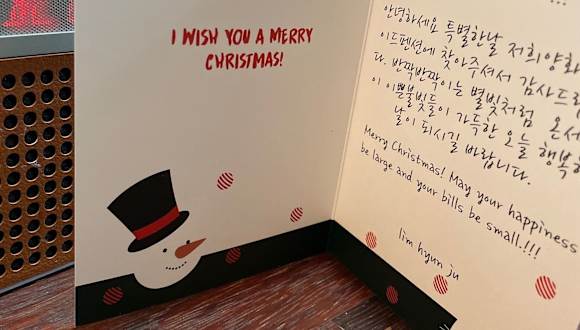 I WISH YOU A MERRY
CHRISTMAS!
안녕하세요 특별한날 저희양화
이드펜션에 찾아주셔서 감사드
다. 반짝반짝이는 별빛처럼 온세
이 이쁜불빛들이 가득한 오늘 행복
날이 되시길 바랍니다.
Merry Christmas! May your happiness
be large and your bills be small.!!!
lim hyun ju